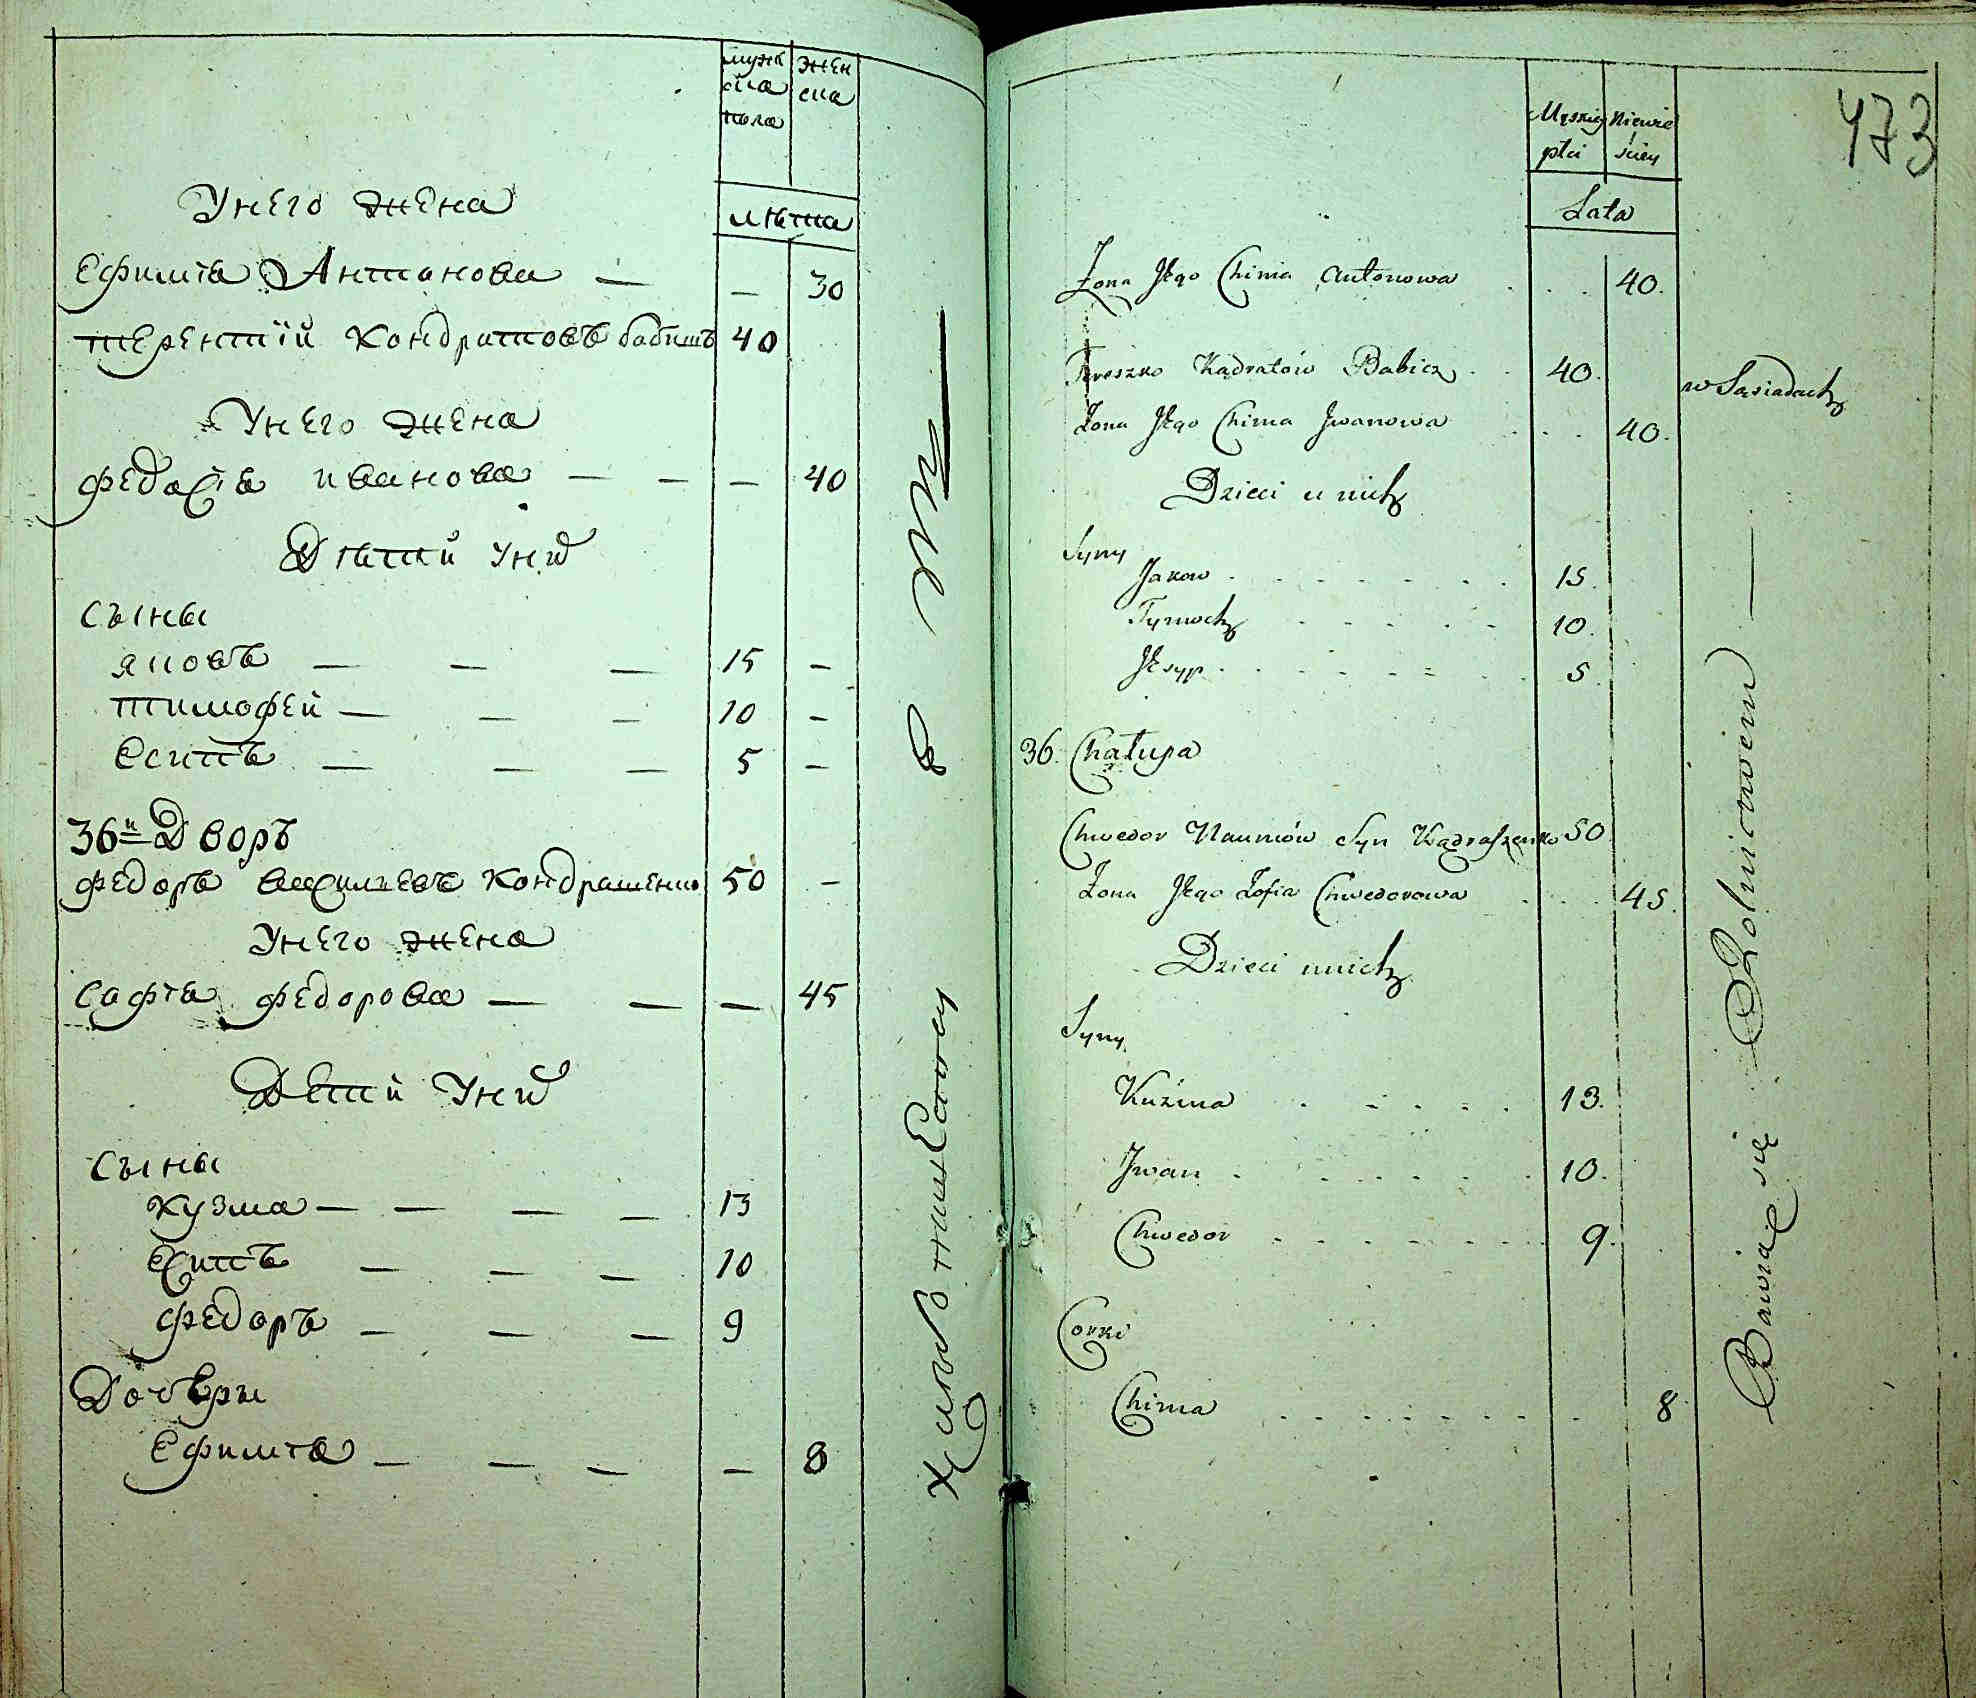 мужеска пола
женска
лѣта
У него жена
Ефимія Антонова — — 30
терентій Кондратовъ бабичъ 40
У него жена
федосія иванова — — — 40
Дѣтей у них
Сыны
яковъ — — — 15 —
тимофей — — — 10 —
Есипъ — — — 5 —
36й Дворъ
федоръ Васильевъ Кондрашенко 50 —
У него жена
Софія федорова — — — 45
Дѣтей у них
Сыны
Кузма — — — — 13
Есипъ — — — 10
федоръ — — — 9
Дочери
Ефимія — — — — 8
473
Męzkiey płci
Niewieściey
Lata
Żona Jego Chima Antonowa . . . 40.
Tereszko Kądratów Babicz . . 40.
w Sąsiadach
Żona Jego Chima Jwanowa . . . 40.
Dzieci u nich
Syny
Jakow . . . . . . . 15.
Tymoch . . . . . 10.
Jesyp . . . . . . . 5.
36. Chałupa
Chwedor Naumów Syn Kądraszenko 50
Żona Jego Zofia Chwedorowa . . . 45.
Dzieci u nich
Syny
Kuźma . . . . . 13.
Jwan . . . . . . 10.
Chwedor . . . . . . . 9.
Corki
Chima . . . . . . . . 8
Bawią się Rolnictwem —